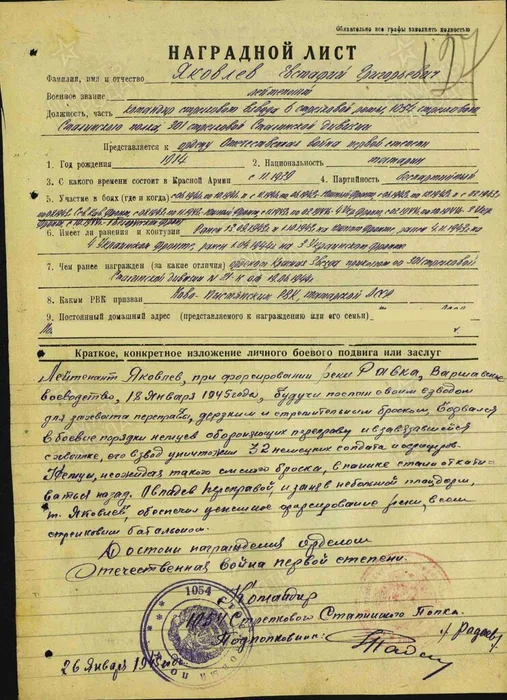 Обязательно все графы заполнять полностью
127
НАГРАДНОЙ ЛИСТ
Фамилия, имя и отчество Яковлев Евстафий Григорьевич
Военное звание лейтенант
Должность, часть командир стрелкового взвода 6 стрелковой роты, 1054 стрелкового
Сталинского полка, 301 стрелковой Сталинской дивизии
Представляется к ордену Отечественная война первой степени
1. Год рождения 1914 2. Национальность татарин
3. С какого времени состоит в Красной Армии с 11.1939 4. Партийность беспартийный
5. Участие в боях (где и когда)
6. Имеет ли ранения и контузии Ранен 12.08.1942
4 Украинском фронте, ранен 1944 на 3 Украинском фронте
7. Чем ранее награжден (за какие отличия) орденом Красная Звезда приказом по 301 стрелковой
Сталинской дивизии
8. Каким РВК призван РВК, татарской АССР
9. Постоянный домашний адрес (представляемого к награждению или его семьи)
Краткое, конкретное изложение личного боевого подвига или заслуг
Лейтенант Яковлев, при форсировании реки Равка, Варшавское
воеводство, 18 Января 1945 года, будучи послан своим взводом
для захвата переправы, дерзким и стремительным броском, ворвался
в боевые порядки немцев обороняющих переправу и завязавшийся
схватке, его взвод уничтожил 32 немецких солдата и офицеров.
Немцы, неожидая такого смелого броска, в панике стали откаты-
ваться назад. Овладев переправой, и заняв небольшой плацдарм,
т. Яковлев, обеспечил успешное форсирование реки, всем
стрелковым батальоном.
Достоин награждения орденом
Отечественная война первой степени.
Командир
1054 Стрелкового Сталинского Полка.
Подполковник: / Радаев /
1054
26 Января 1945 года